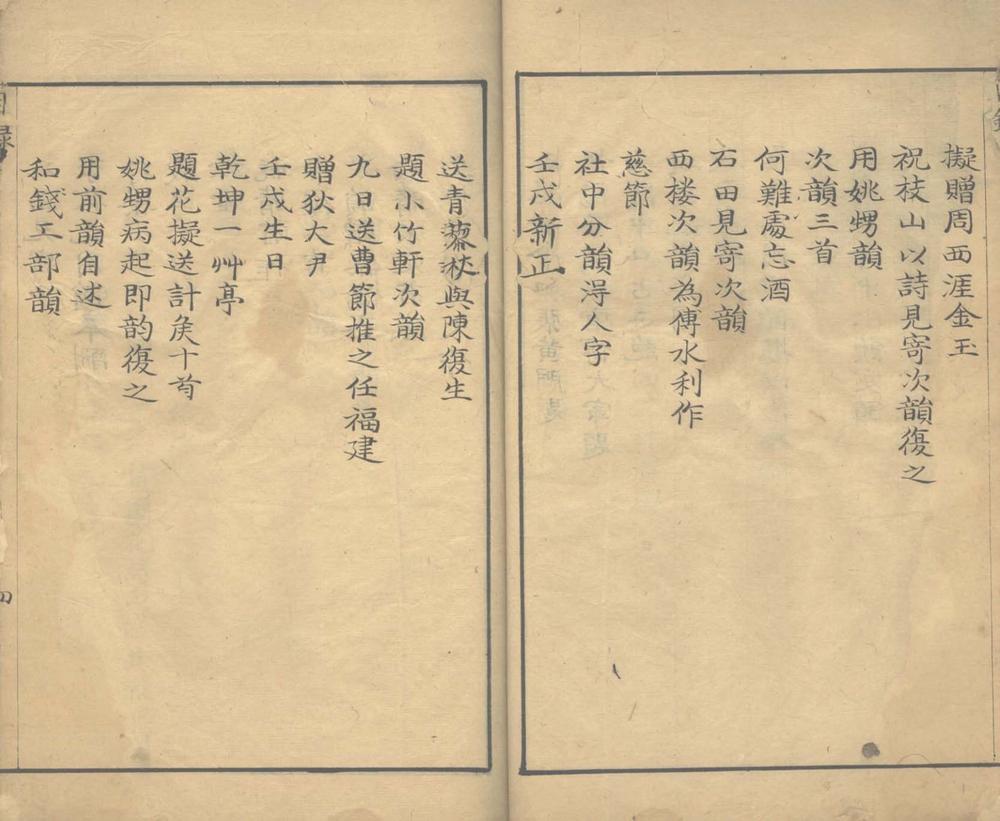 擬贈周西涯金玉
祝枝山以詩見寄次韻復之
用姚甥韻
次韻三首
何難處忘酒
石田見寄次韻
西楼次韻為傅水利作
慈節
社中分韻淂人字
壬戌新正
送青藜杖與陳復生
題小竹軒次韻
九日送曹節推之任福建
贈狄大尹
壬戌生日
乾坤一艸亭
題花擬送計矦十首
姚甥病起即韵復之
用前韻自述
和錢工部韻
目録
四